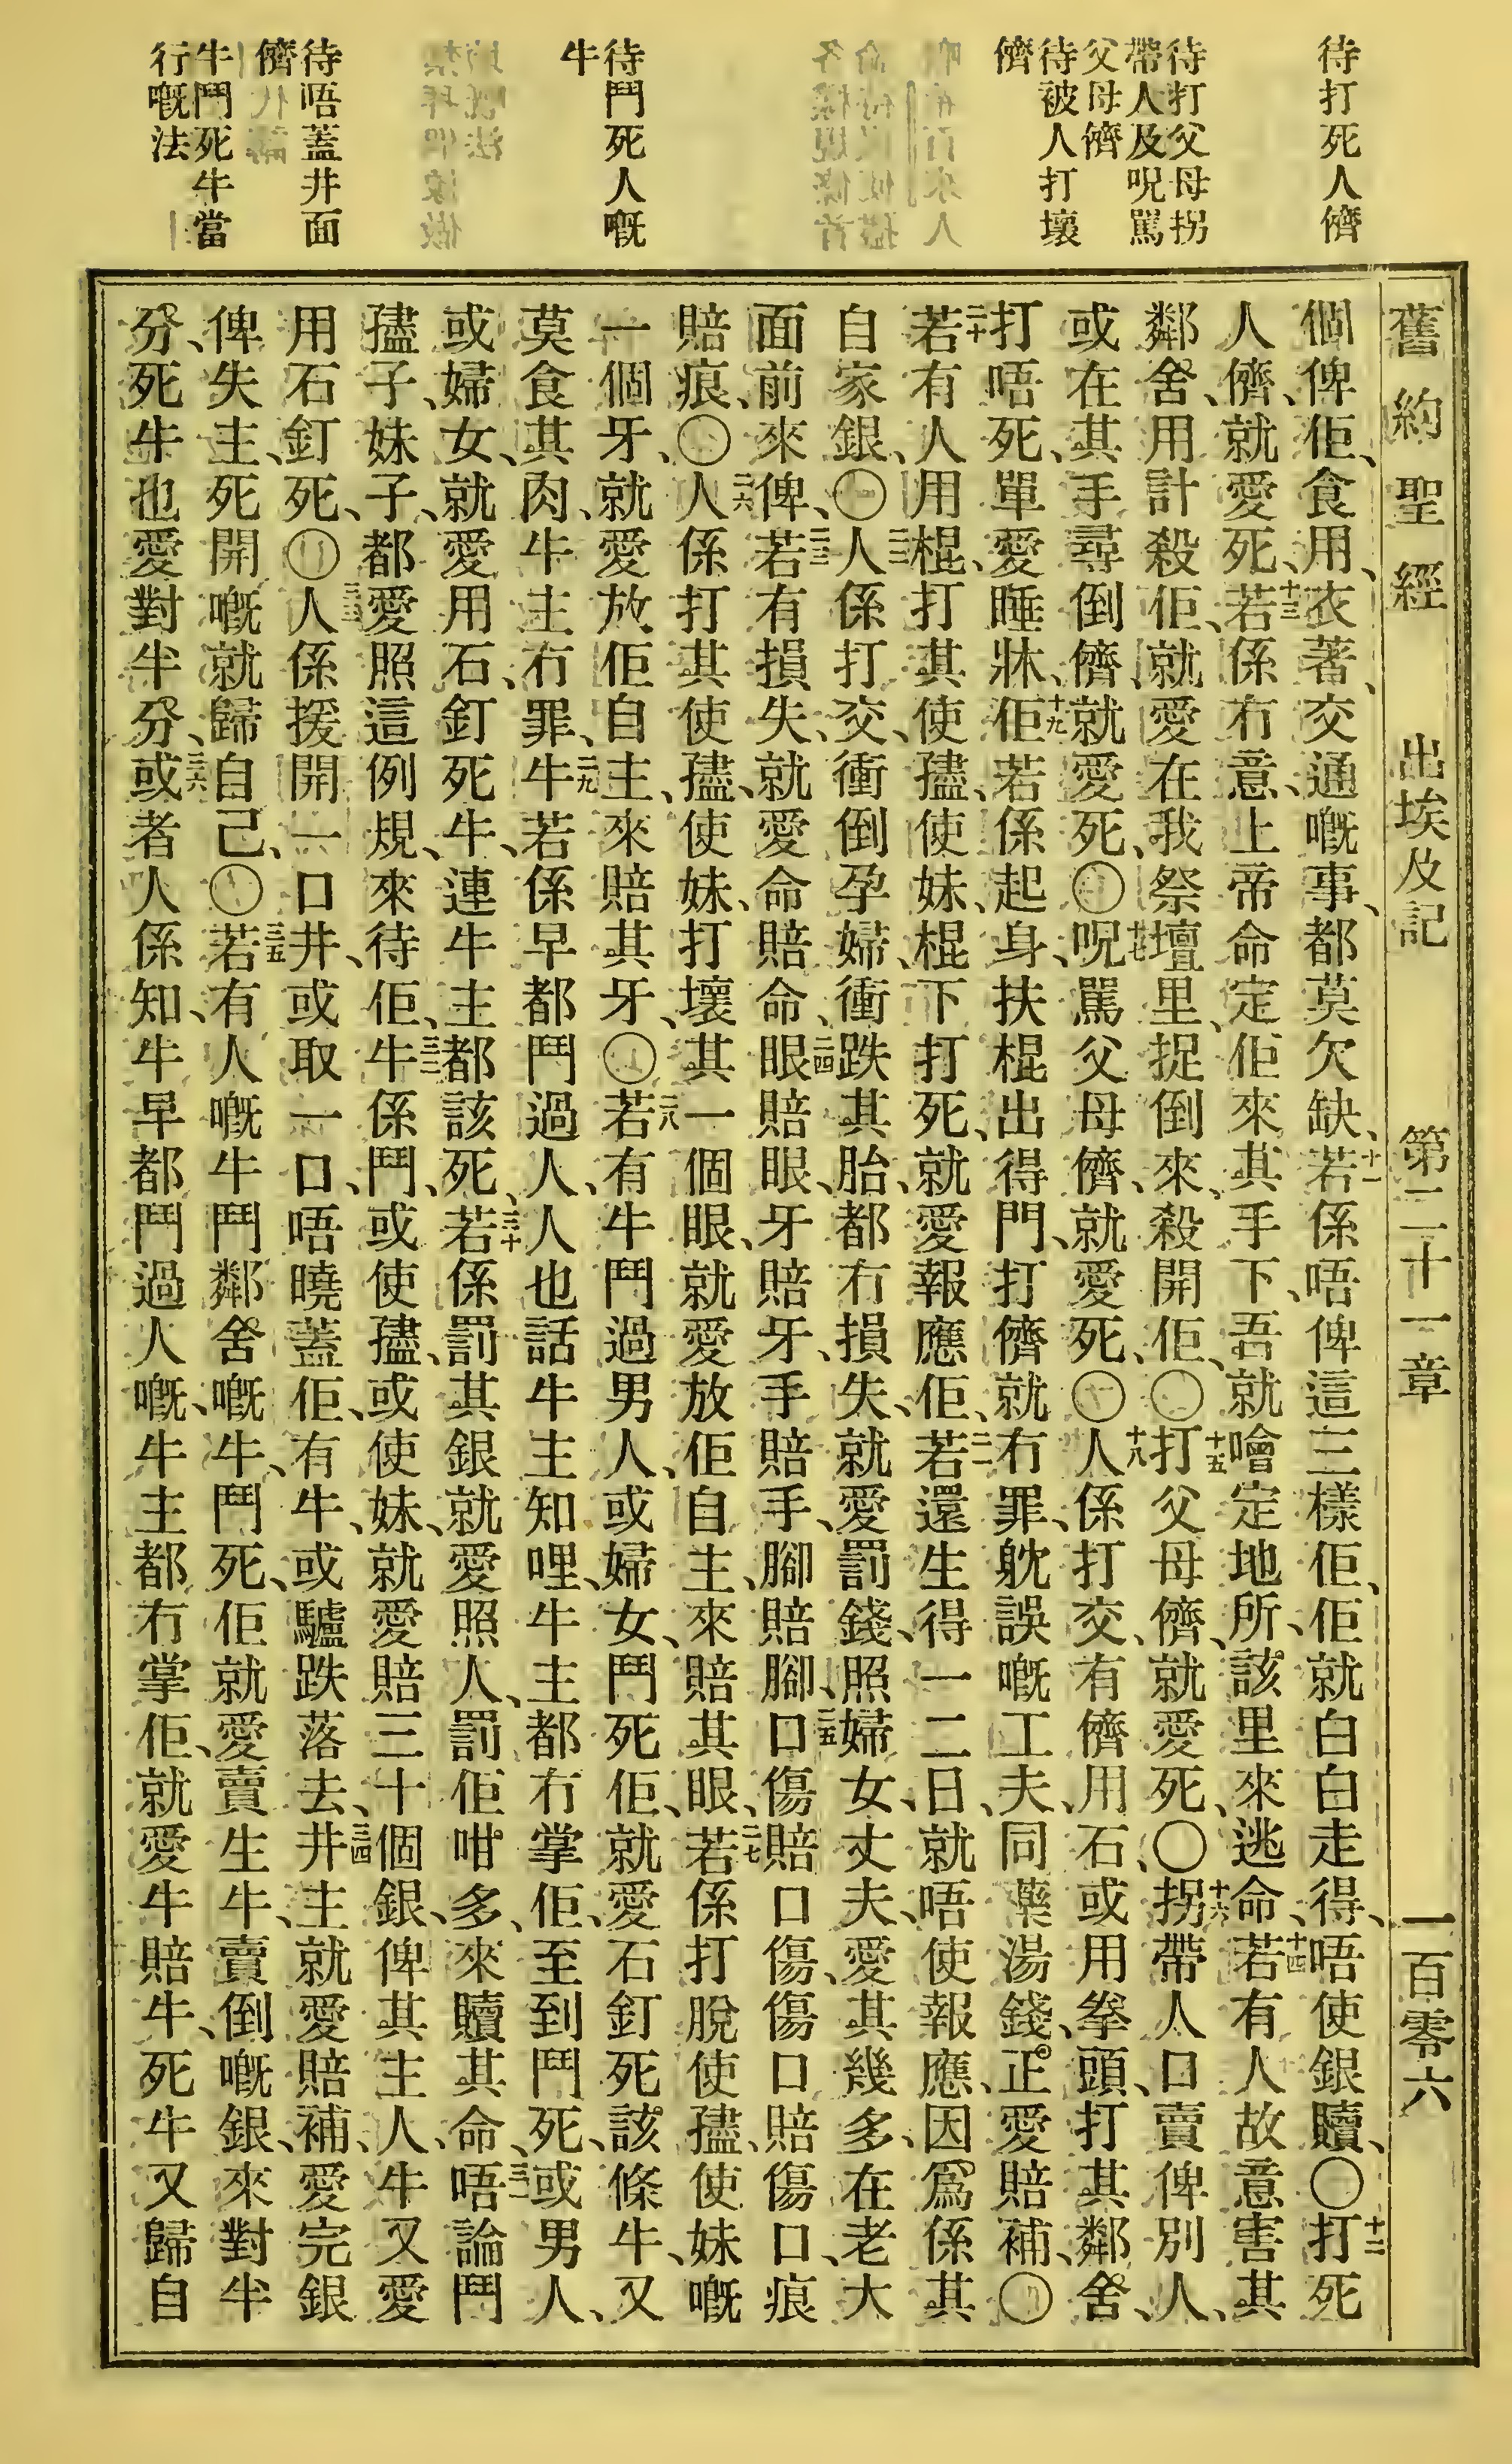 待打死人儕
待打父母拐
帶人及呪罵
父母儕
待被人打壞
儕
待鬥死人嘅
牛
待唔蓋井面
儕
牛鬥死牛當
行嘅法
舊約聖經 出埃及記 第二十一章 一百零六
個俾佢、食用、衣著、交通嘅事、都莫欠缺、十一若係唔俾這三樣佢、佢就白白走得、唔使銀贖、〇十二打死
人儕、就愛死、十三若係冇意、上帝命定佢來其手下、吾就噲定地所、該里來逃命、十四若有人故意害其
鄰舍、用計殺佢、就愛在我祭壇里、捉倒來、殺開佢、〇十五打父母儕、就愛死、〇十六拐帶人口賣俾別人、
或在其手尋倒儕、就愛死、〇十七呪罵父母儕、就愛死、〇十八人係打交、有儕用石、或用拳頭、打其鄰舍、
打唔死、單愛睡牀、十九佢若係起身、扶棍出得門、打儕就冇罪、躭誤嘅工夫、同藥湯錢、正愛賠補、〇
二十若有人用棍、打其使孻、使妹、棍下打死、就愛報應佢、二一若還生得一二日、就唔使報應、因爲係其
自家銀、〇二二人係打交、衝倒孕婦、衝跌其胎、都冇損失、就愛罰錢、照婦女丈夫、愛其幾多、在老大
面前來俾、二三若有損失、就愛命賠命、二四眼賠眼、牙賠牙、手賠手、腳賠腳、二五口傷賠口傷、傷口賠傷口、痕
賠痕、〇二六人係打其使孻、使妹、打壞其一個眼、就愛放佢自主、來賠其眼、二七若係打脫使孻、使妹嘅
一個牙、就愛放佢自主、來賠其牙、〇二八若有牛鬥過男人、或婦女、鬥死佢、就愛石釘死該條牛、又
莫食其肉、牛主冇罪、二九牛若係早都鬥過人、人也話牛主知哩、牛主都冇掌佢、至到鬥死、或男人、
或婦女、就愛用石、釘死牛、連牛主都該死、三十若係罰其銀、就愛照人、罰佢咁多、來贖其命、三一唔論鬥
孻子、妹子、都愛照這例規、來待佢、三二牛係鬥、或使孻、或使妹、就愛賠三十個銀、俾其主人、牛又愛
用石釘死、〇三三人係援開一口井、或取一口、唔曉蓋佢、有牛、或驢跌落去、三四井主就愛賠補、愛完銀
俾失主、死開嘅就歸自己、〇三五若有人嘅牛鬥鄰舍嘅牛、鬥死、佢就愛賣生牛、賣倒嘅銀、來對半
分、死牛也愛對半分、三六或者人係知、牛早都鬥過人嘅、牛主都冇掌佢、就愛牛賠牛、死牛又歸自